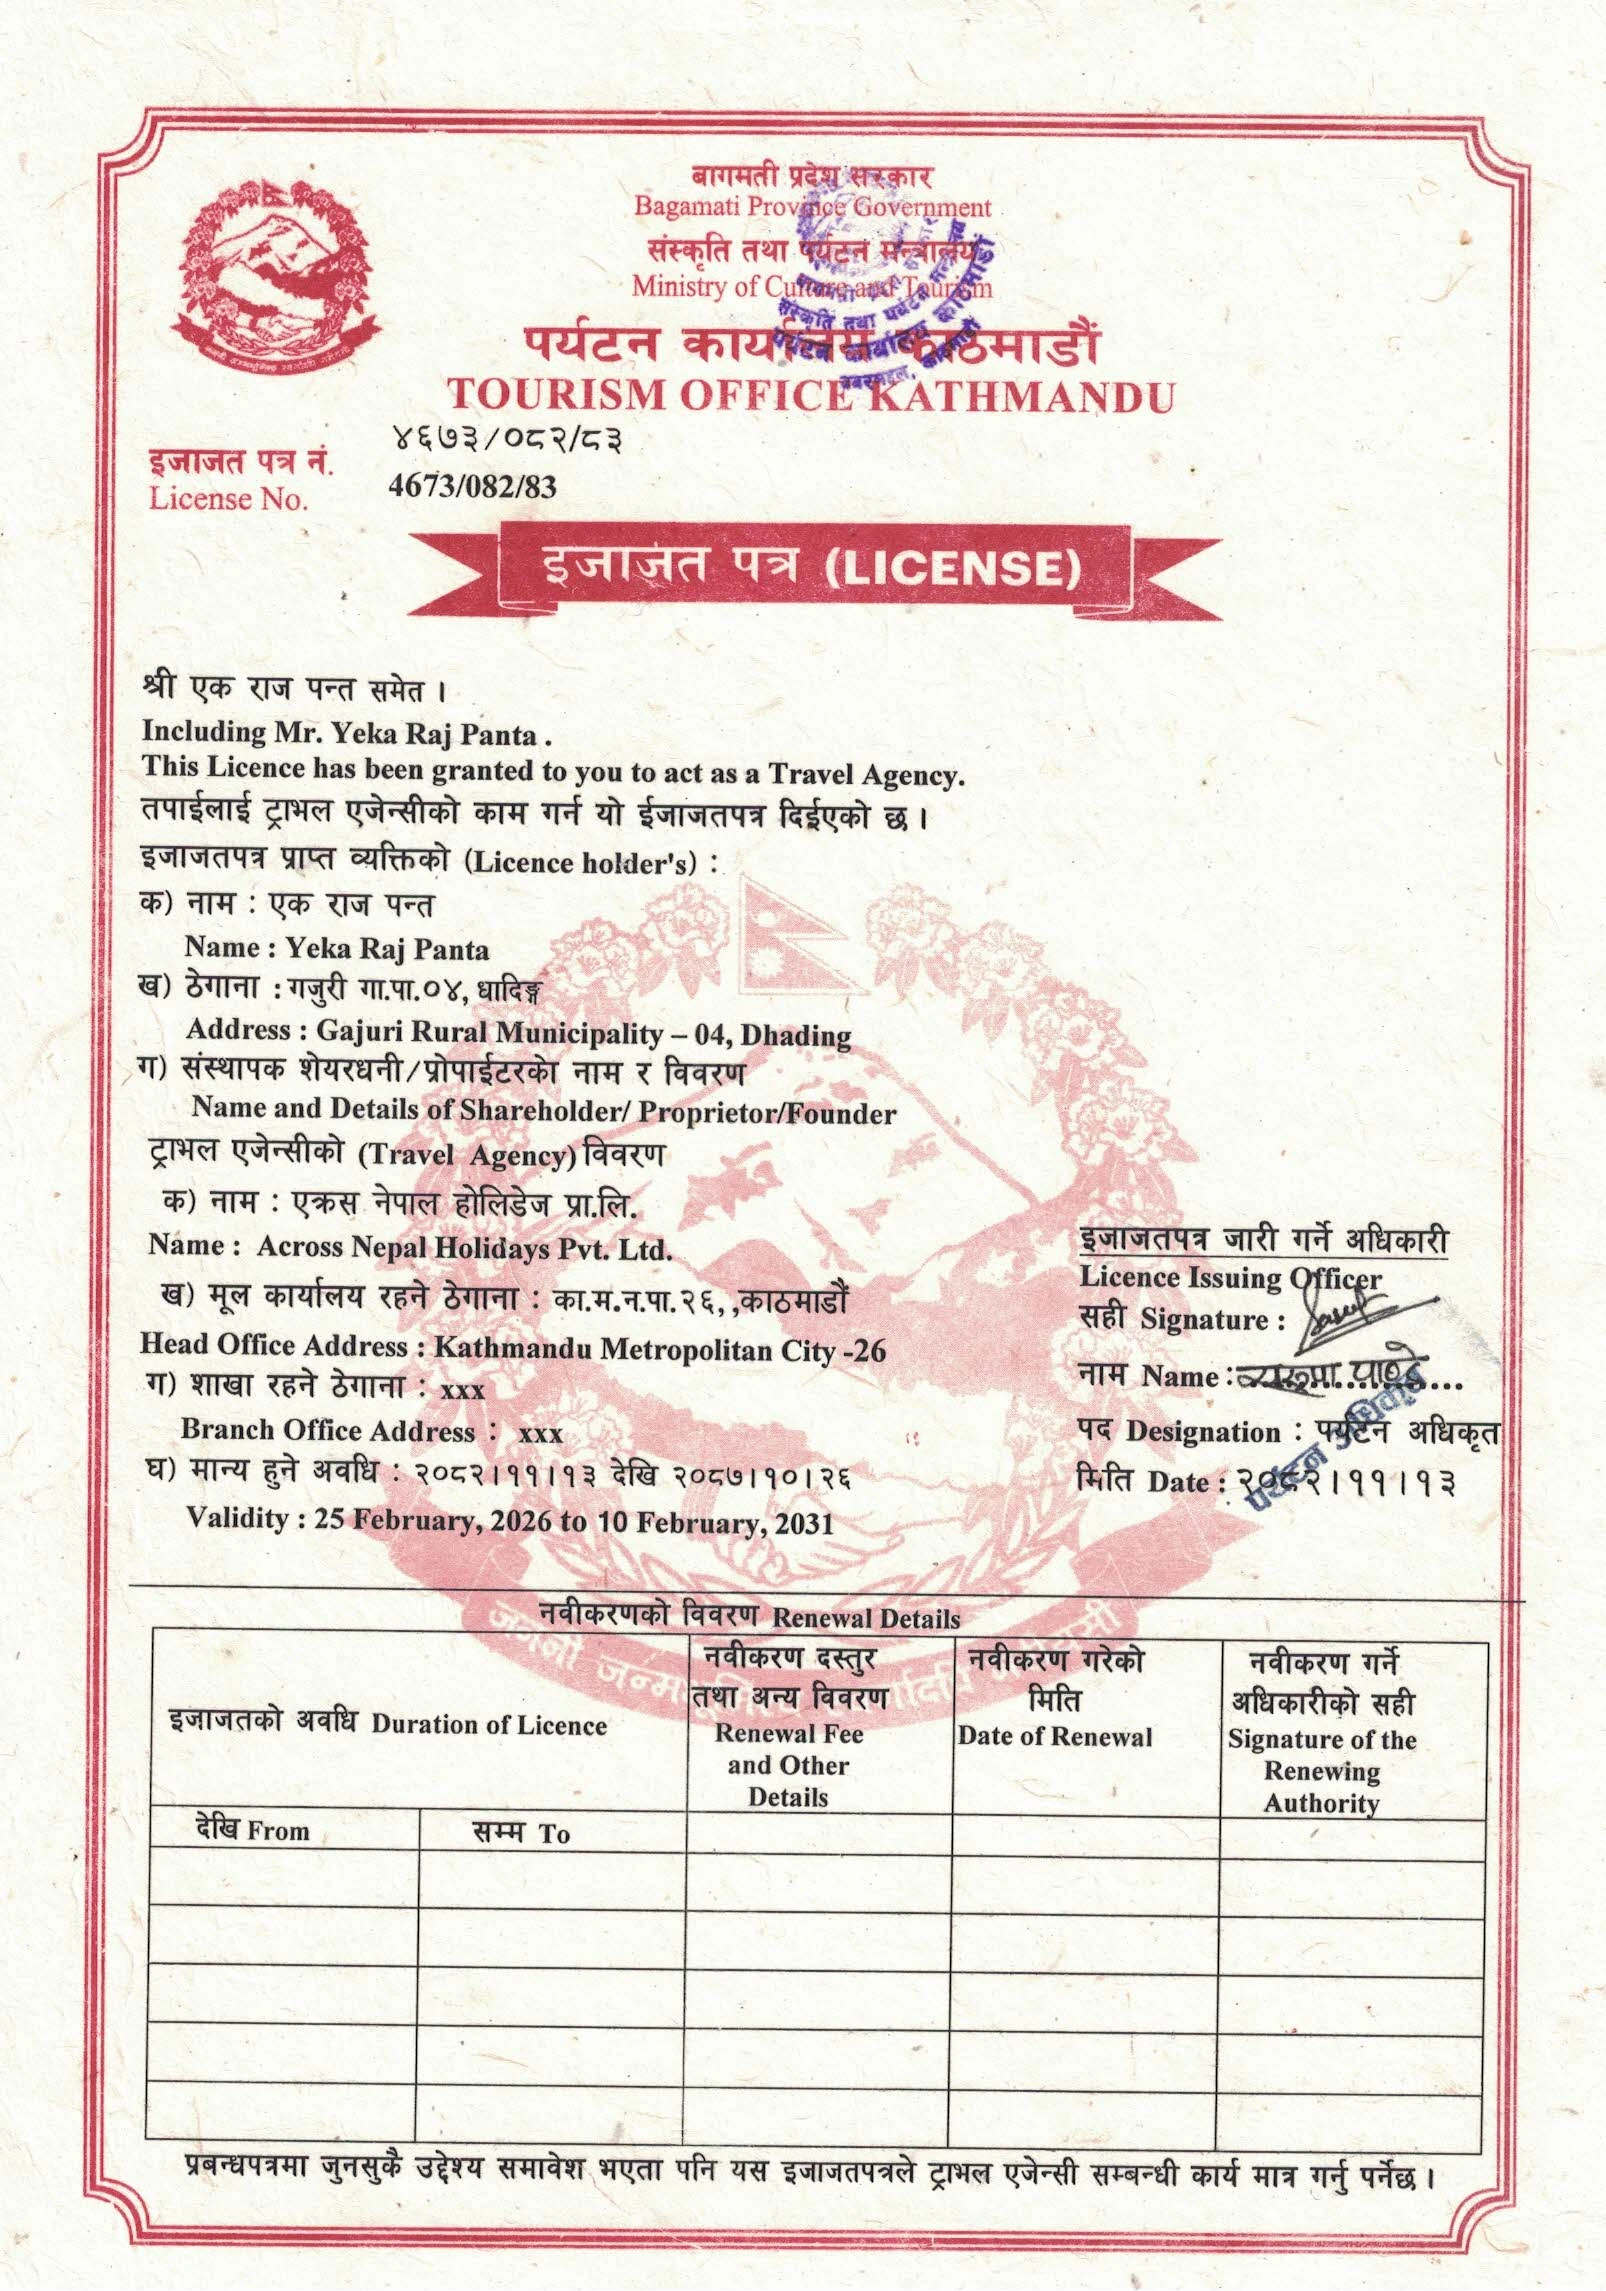 बागमती प्रदेश सरकार
Bagamati Province Government
संस्कृति तथा पर्यटन मन्त्रालय
Ministry of Culture and Tourism
पर्यटन कार्यालय काठमाडौं
TOURISM OFFICE KATHMANDU
इजाजत पत्र नं. ४६७३/०८२/८३
License No. 4673/082/83
इजाजत पत्र (LICENSE)
श्री एक राज पन्त समेत ।
Including Mr. Yeka Raj Panta .
This Licence has been granted to you to act as a Travel Agency.
तपाईलाई ट्राभल एजेन्सीको काम गर्न यो ईजाजतपत्र दिईएको छ ।
इजाजतपत्र प्राप्त व्यक्तिको (Licence holder's) :
क) नाम : एक राज पन्त
Name : Yeka Raj Panta
ख) ठेगाना : गजुरी गा.पा.०४, धादिङ्ग
Address : Gajuri Rural Municipality – 04, Dhading
ग) संस्थापक शेयरधनी/प्रोपाईटरको नाम र विवरण
Name and Details of Shareholder/ Proprietor/Founder
ट्राभल एजेन्सीको (Travel Agency) विवरण
क) नाम : एक्रस नेपाल होलिडेज प्रा.लि.
Name : Across Nepal Holidays Pvt. Ltd.
ख) मूल कार्यालय रहने ठेगाना : का.म.न.पा.२६,,काठमाडौं
Head Office Address : Kathmandu Metropolitan City -26
ग) शाखा रहने ठेगाना : xxx
Branch Office Address : xxx
घ) मान्य हुने अवधि : २०८२।११।१३ देखि २०८७।१०।२६
Validity : 25 February, 2026 to 10 February, 2031
इजाजतपत्र जारी गर्ने अधिकारी
Licence Issuing Officer
सही Signature :
नाम Name :
पद Designation : पर्यटन अधिकृत
मिति Date : २०८२।११।१३
पर्यटन अधिकृत
नवीकरणको विवरण Renewal Details
इजाजतको अवधि Duration of Licence
नवीकरण दस्तुर
तथा अन्य विवरण
Renewal Fee
and Other
Details
नवीकरण गरेको
मिति
Date of Renewal
नवीकरण गर्ने
अधिकारीको सही
Signature of the
Renewing
Authority
देखि From
सम्म To
प्रबन्धपत्रमा जुनसुकै उद्देश्य समावेश भएता पनि यस इजाजतपत्रले ट्राभल एजेन्सी सम्बन्धी कार्य मात्र गर्नु पर्नेछ ।